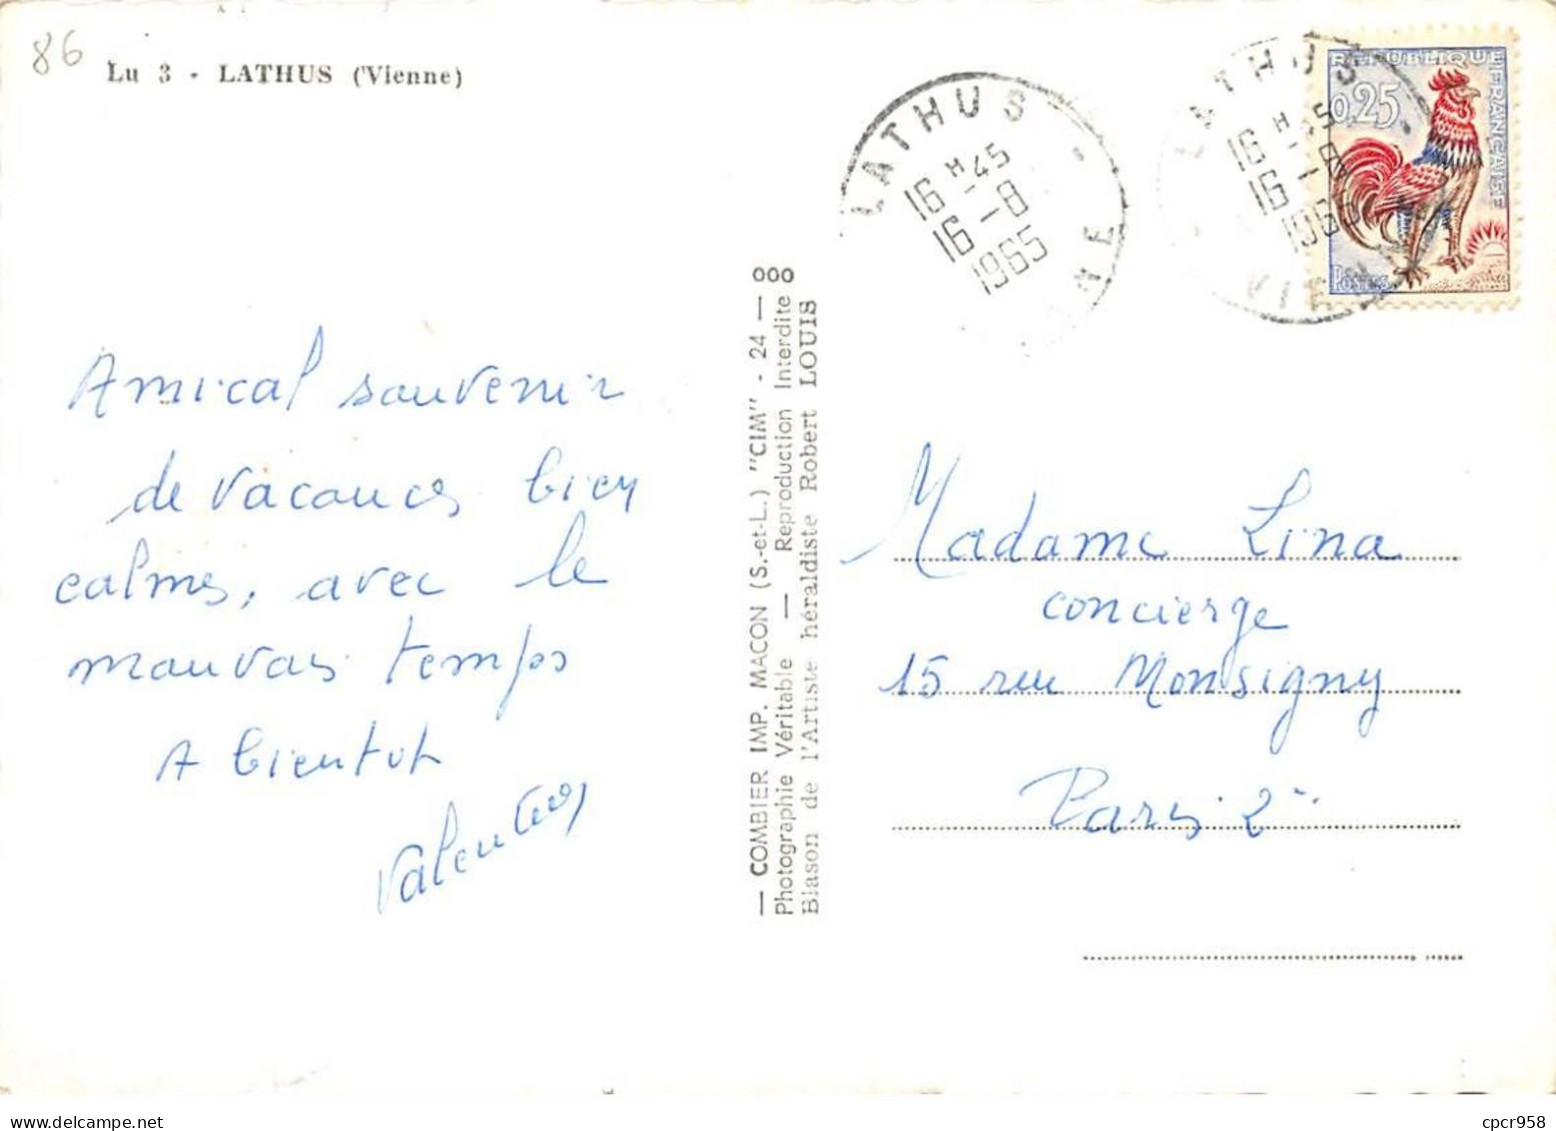 86
Lu 3 - LATHUS (Vienne)
LATHUS
16 H 45
16 - 8
1965
NE
LATHUS
16 H 45
16 - 8
1965
VIEN
REPUBLIQUE FRANÇAISE
0,25
POSTES
Amical souvenir
de vacances bien
calmes, avec le
mauvais temps
A bientot
— COMBIER IMP. MACON (S.-et-L.) "CIM" - 24 — 000
Photographie Véritable — Reproduction Interdite
Blason de l'Artiste héraldiste Robert LOUIS
Madame Lina
concierge
15 rue Monsigny
Paris 2
cpcr958